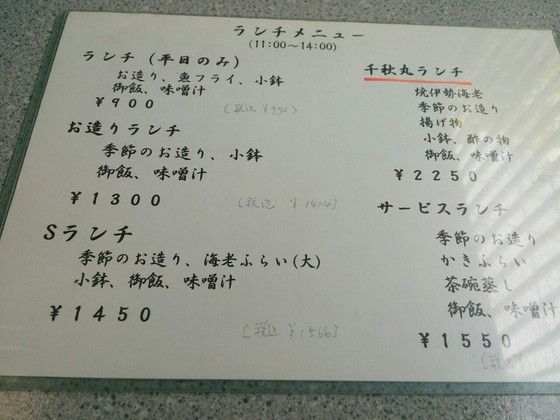 ランチメニュー
(11:00～14:00)
ランチ (平日のみ)
お造り、魚フライ、小鉢
御飯、味噌汁
￥900
[税込 ￥972]
お造りランチ
季節のお造り、小鉢
御飯、味噌汁
￥1300
[税込 ￥1404]
Sランチ
季節のお造り、海老ふらい(大)
小鉢、御飯、味噌汁
￥1450
[税込 ￥1566]
千秋丸ランチ
焼伊勢海老
季節のお造り
揚げ物
小鉢、酢の物
御飯、味噌汁
￥2250
サービスランチ
季節のお造り
かきふらい
茶碗蒸し
御飯、味噌汁
￥1550
[税込